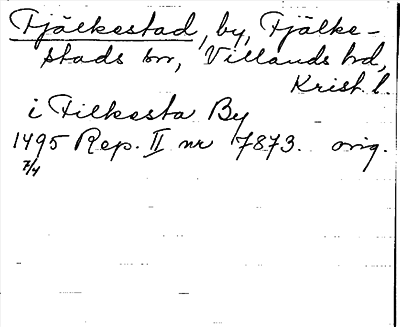 Fjälkestad, by, Fjälke-
stads sn, Villands hd,
Krist. l.
i Filkesta By
1495 Rep. II nr 7873. orig.
7/4